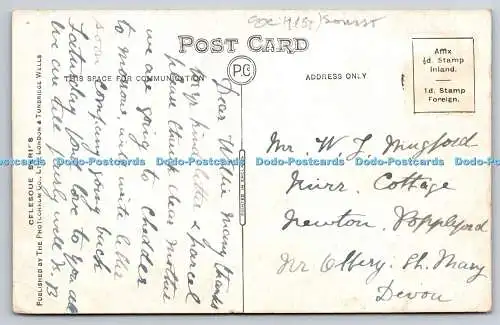 90c 4(St) Somerset
POST CARD
THIS SPACE FOR COMMUNICATION
PC
ADDRESS ONLY
Affix
½d. Stamp
Inland.
1d. Stamp
Foreign.
Dear Willie many thanks
for kind letter & parcel
please thank dear mother
we are going to Chedder
to morrow, will write later
soon Company going back
Saturday fond love to you all
We are all fairly well
Mr W. J. Mugford
Cottage
Newton Poppleford
Nr Ottery St. Mary
Devon
CELESQUE SERIES
PUBLISHED BY THE PHOTOCHROM CO. LTD. LONDON & TUNBRIDGE WELLS
Dodo-Postcards Dodo-Postcards Dodo-Postcards Dodo-Postcards Dodo-Postcards